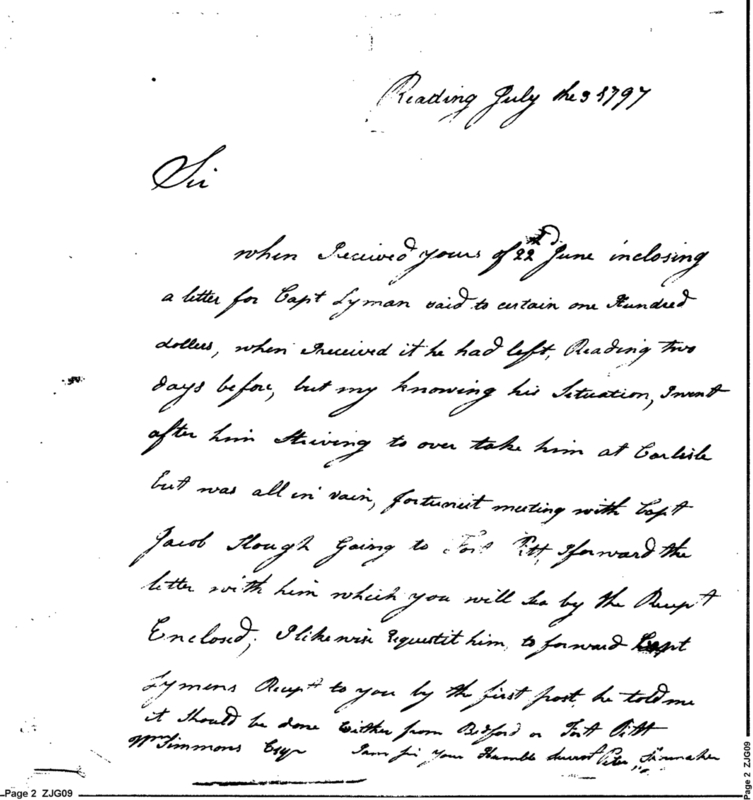 Reading July the 3 1797
Sir
when I received yours of 22d June inclosing
a letter for Capt Lyman said to certain one Hundred
dollers, when I received it he had left, Reading two
days before, but my knowing his Situation, I went
after him Striving to over take him at Carlisle
but was all in vain, fortuniet meeting with Capt
Jacob Slough Going to Fort Pitt, I forward the
letter with him which you will Sea by the Recept
Enclosed; I likewise requestit him, to forward Capt
Lymens Recept to you by the first post, he told me
it Should be done Either from Bedford or Fort Pitt
Wm Simmons Esqr I am Sir your Humble Servnt Peter
Page 2 ZJG09
Page 2 ZJG09